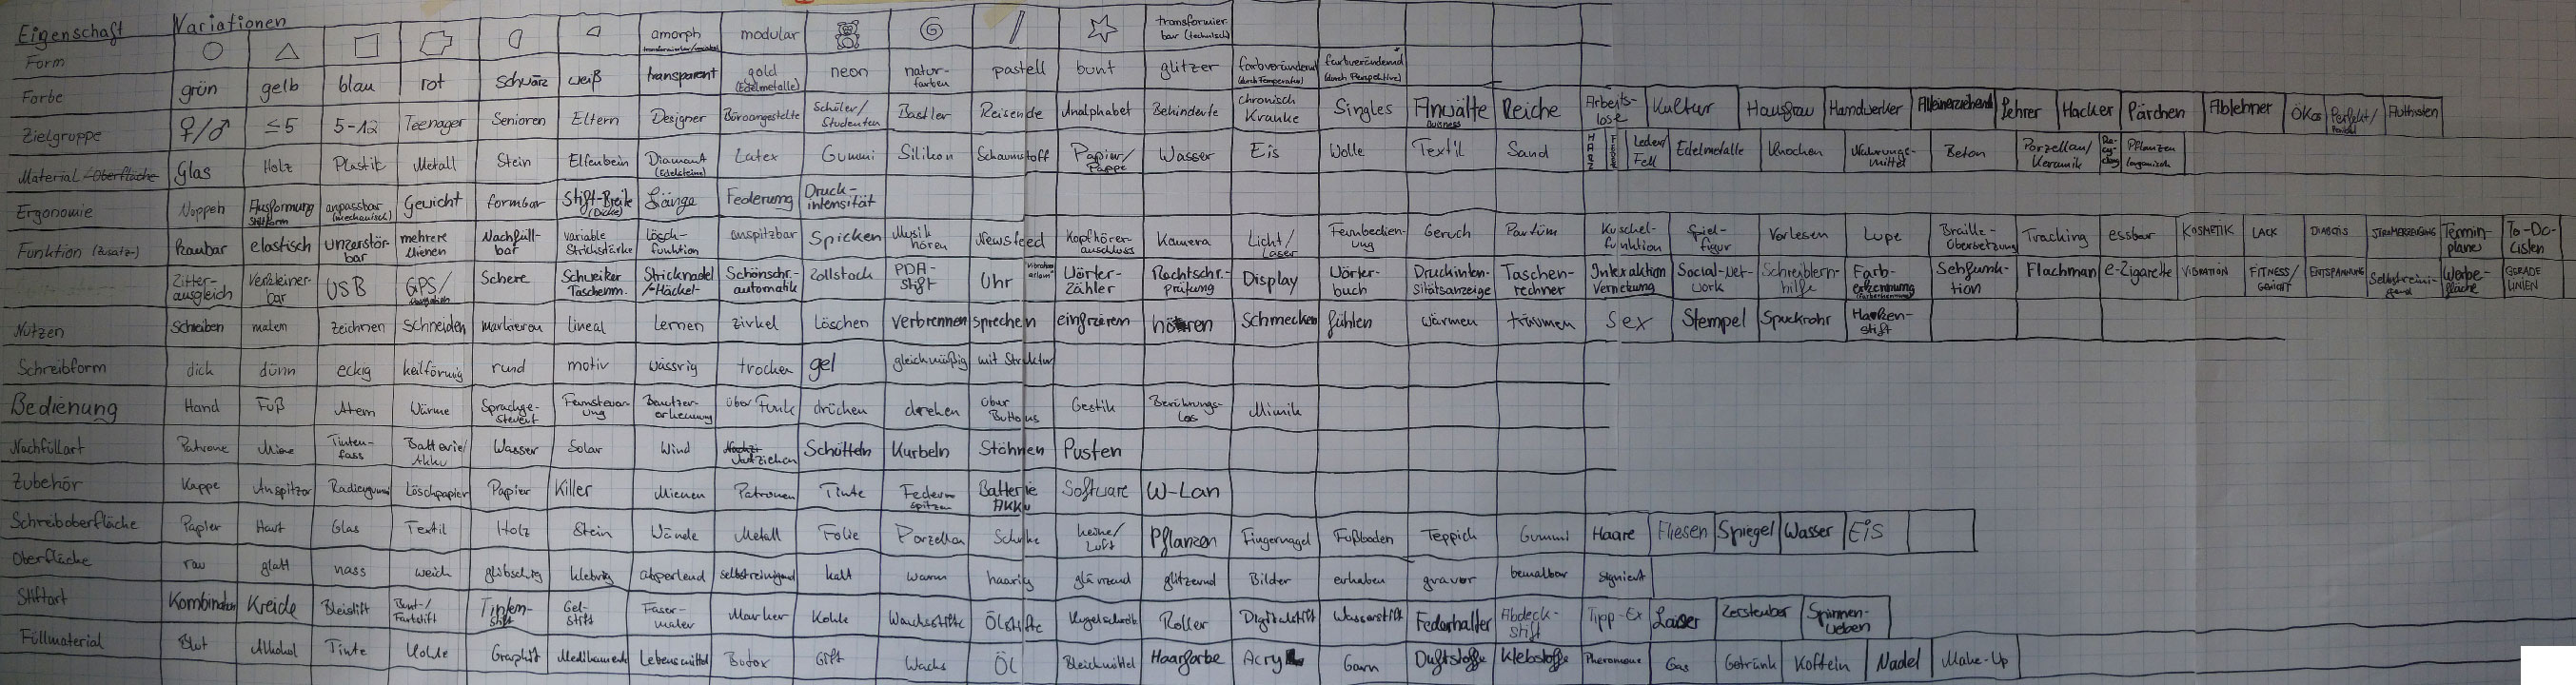 Eigenschaft Variationen
Form amorph modular transformierbar (technisch)
Farbe grün gelb blau rot schwarz weiß transparent gold (Edelmetalle) neon naturfarben pastell bunt glitzer farbverändernd (durch Temperatur) farbverändernd (durch Perspektive)
Zielgruppe ♀/♂ ≤5 5-12 Teenager Senioren Eltern Designer Büroangestellte Schüler/Studenten Bastler Reisende Analphabet Behinderte chronisch Kranke Singles Anwälte Business Reiche Arbeitslose Kultur Hausfrau Handwerker Alleinerziehend Lehrer Hacker Pärchen Ablehner Ökos Autisten
Material/Oberfläche Glas Holz Plastik Metall Stein Elfenbein Diamant (Edelsteine) Latex Gummi Silikon Schaumstoff Papier/Pappe Wasser Eis Wolle Textil Sand HARZ Leder/Fell Edelmetalle Knochen Nahrungsmittel Beton Porzellan/Keramik Recycling Pflanzen (organisch)
Ergonomie Noppen Ausformung Stiftform anpassbar (mechanisch) Gewicht formbar Stift-Breite (Dicke) Länge Federung Druckintensität
Funktion (Zusatz) Kaubar elastisch unzerstörbar mehrere Mienen Nachfüllbar variable Strichstärke Löschfunktion anspitzbar Spicken Musik hören Newsfeed Kopfhöreranschluss Kamera Licht/Laser Fernbedienung Geruch Parfüm Kuschelfunktion Spielfigur Vorlesen Lupe Braille-Übersetzung Tracking essbar KOSMETIK LACK STROMERZEUGUNG Terminplaner To-Do-Listen
Zitterausgleich Verkleinerbar USB GPS/Navigation Schere Schweizer Taschenm. Stricknadel/-Häckel- Schönschr.-automatik Zollstock PDA-Stift Uhr Vibrationsalarm Wörter-Zähler Rechtschr.-prüfung Display Wörterbuch Druckintensitätsanzeige Taschenrechner Interaktion Vernetzung Social-Network Schreiblernhilfe Farberkennung Sehfunktion Flachman e-Zigarette VIBRATION FITNESS/GEWICHT ENTSPANNUNG Selbstreinigend Werbefläche GERADE LINIEN
Nutzen Schreiben malen zeichnen schneiden markieren lineal Lernen Zirkel Löschen verbrennen sprechen eingfrieren hören Schmecken fühlen wärmen träumen Sex Stempel Spuckrohr Hackenstift
Schreibform dick dünn eckig keilförmig rund motiv wässrig trocken gel gleichmäßig mit Struktur
Bedienung Hand Fuß Atem Wärme Sprachgesteuert Fernsteuerung Benutzererkennung über Funk drücken drehen über Buttons Gestik Berührungslos Mimik
Nachfüllart Patrone Miene Tintenfass Batterie/Akku Wasser Solar Wind Aufziehen Schütteln Kurbeln Stöhnen Pusten
Zubehör Kappe Anspitzer Radiergummi Löschpapier Papier Killer Mienen Patronen Tinte Federnspitzen Batterie Akku Software W-Lan
Schreiboberfläche Papier Haut Glas Textil Holz Stein Wände Metall Folie Porzellan Schuhe keine/Luft Pflanzen Fingernagel Fußboden Teppich Gummi Haare Fliesen Spiegel Wasser Eis
Oberfläche rau glatt nass weich glibschig klebrig abperlend selbstreinigend kalt warm haarig glänzend glitzernd Bilder erhaben gravur bemalbar signiert
Stiftart Kombination Kreide Bleistift Bunt-/Farbstift Tintenstift Gelstift Fasermaler Marker Kohle Wachsstifte Ölstifte Kugelschreib Roller Digitalstift Wasserstift Federhalter Abdeckstift Tipp-Ex Laser Zersteuber Spinnenweben
Füllmaterial Blut Alkohol Tinte Kohle Graphit Medikamente Lebensmittel Botox Gift Wachs Öl Bleichmittel Haarfarbe Acryl Garn Duftstoffe Klebstoffe Pheromone Gas Getränk Koffein Nadel Make-Up